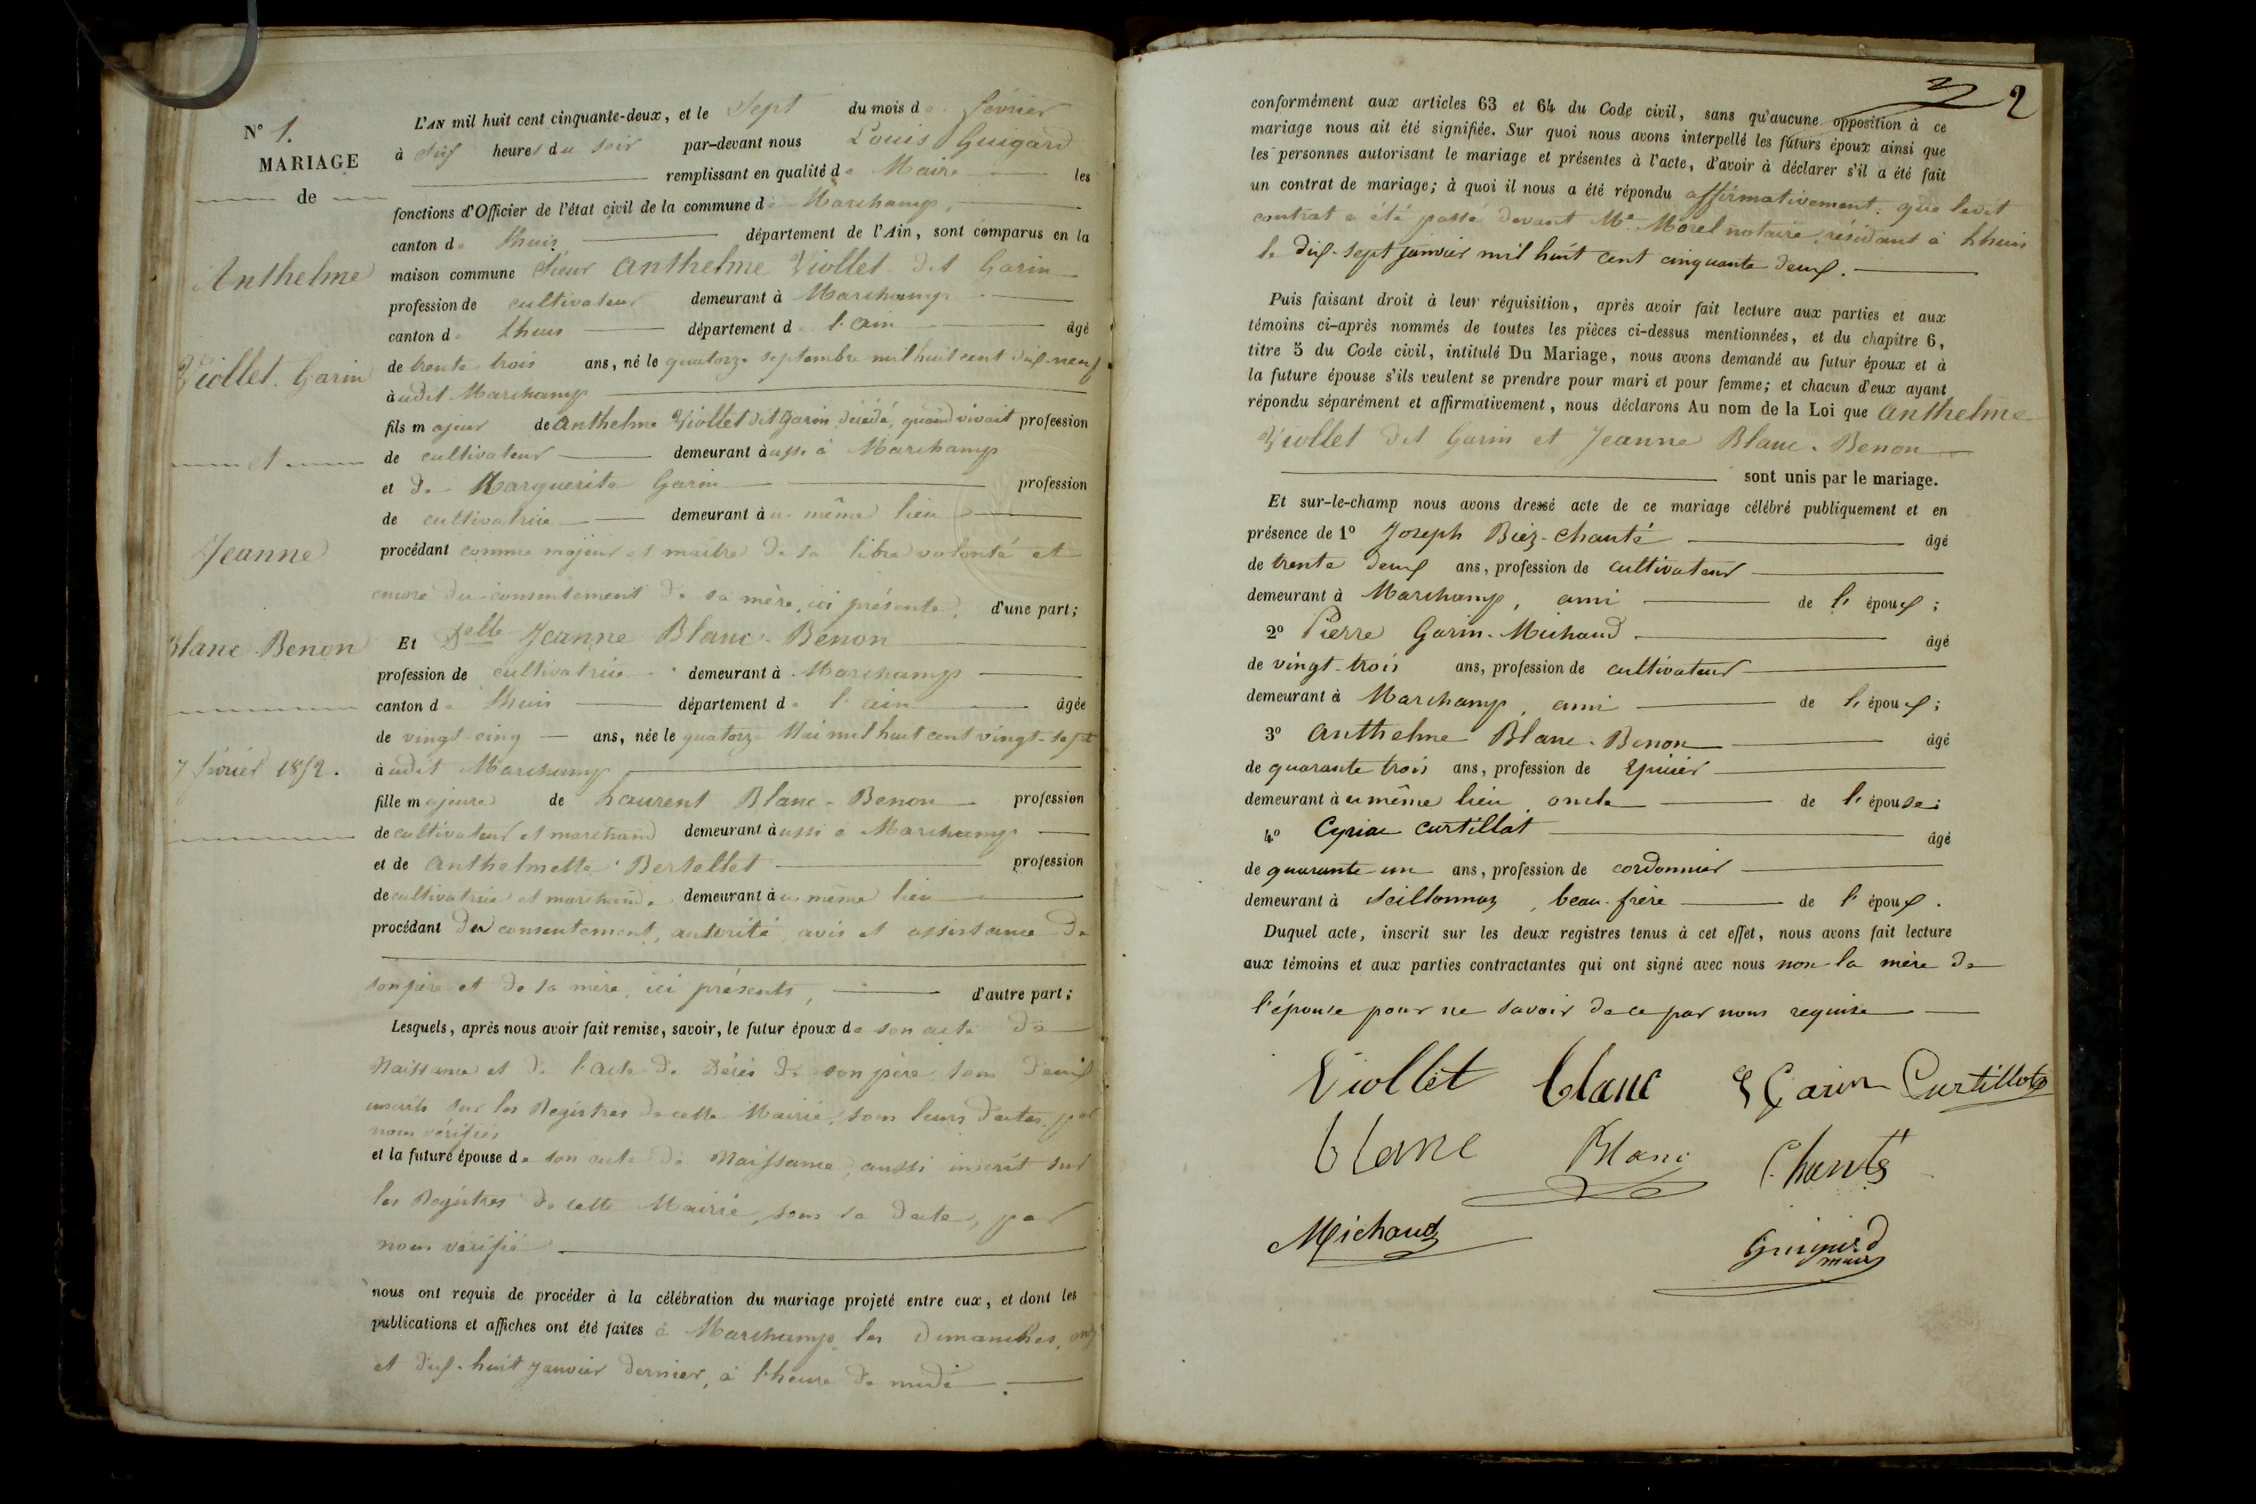 N° 1.
MARIAGE
de
Anthelme
Viollet. Garin
et
Jeanne
Blanc-Benon
7 février 1852.
L'AN mil huit cent cinquante-deux, et le Sept du mois de février
à Six heures du soir par-devant nous Louis Guigard
remplissant en qualité de Maire les
fonctions d'Officier de l'état civil de la commune de Marchamp,
canton de Lhuis département de l'Ain, sont comparus en la
maison commune Sieur Anthelme Viollet dit Garin
profession de cultivateur demeurant à Marchamp
canton de Lhuis département de l'ain âgé
de trente trois ans, né le quatorze septembre mil huit cent dix-neuf
àudit Marchamp
fils majeur de Anthelme Viollet dit Garin, décédé, quand vivait profession
de cultivateur demeurant àussi à Marchamp
et de Marguerite Garin profession
de cultivatrice demeurant àu même lieu
procédant comme majeur et maître de sa libre volonté et
encore du consentement de sa mère, ici présente, d'une part;
Et Delle Jeanne Blanc-Benon
profession de cultivatrice demeurant à Marchamp
canton de Lhuis département de l'ain âgée
de vingt-cinq ans, née le quatorze Mai mil huit cent vingt-sept
àudit Marchamp
fille majeure de Laurent Blanc-Benon profession
de cultivateur et marchand demeurant àussi à Marchamp
et de Anthelmette Bertellet profession
de cultivatrice et marchande demeurant àu même lieu
procédant du consentement, autorité, avis et assistance de
son père et de sa mère, ici présents, d'autre part;
Lesquels, après nous avoir fait remise, savoir, le futur époux de son acte de
Naissance et de l'acte de Décès de son père tous deux
inscrits sur les Registres de cette Mairie, sous leurs dates, par
nous vérifiés
et la future épouse de son acte de Naissance, aussi inscrit sur
les Registres de cette Mairie, sous sa date, par
nous vérifié
nous ont requis de procéder à la célébration du mariage projeté entre eux, et dont les
publications et affiches ont été faites à Marchamp les dimanches, onze
et dix-huit janvier dernier, à l'heure de midi.
2
conformément aux articles 63 et 64 du Code civil, sans qu'aucune opposition à ce
mariage nous ait été signifiée. Sur quoi nous avons interpellé les futurs époux ainsi que
les personnes autorisant le mariage et présentes à l'acte, d'avoir à déclarer s'il a été fait
un contrat de mariage; à quoi il nous a été répondu affirmativement. que ledit
contrat a été passé devant Me. Morel notaire, résidant à Lhuis
le dix-sept janvier mil huit cent cinquante deux.
Puis faisant droit à leur réquisition, après avoir fait lecture aux parties et aux
témoins ci-après nommés de toutes les pièces ci-dessus mentionnées, et du chapitre 6,
titre 5 du Code civil, intitulé Du Mariage, nous avons demandé au futur époux et à
la future épouse s'ils veulent se prendre pour mari et pour femme; et chacun d'eux ayant
répondu séparément et affirmativement, nous déclarons Au nom de la Loi que Anthelme
Viollet dit Garin et Jeanne Blanc-Benon
sont unis par le mariage.
Et sur-le-champ nous avons dressé acte de ce mariage célébré publiquement et en
présence de 1° Joseph Biez-Chanté âgé
de trente deux ans, profession de cultivateur
demeurant à Marchamp, ami de l'époux;
2° Pierre Garin-Michaud âgé
de vingt-trois ans, profession de cultivateur
demeurant à Marchamp, ami de l'époux;
3° Anthelme Blanc-Benon âgé
de quarante trois ans, profession de Epicier
demeurant àu même lieu, oncle de l'épouse;
4° Cyriac Curtillat âgé
de quarante-un ans, profession de cordonnier
demeurant à Seillonnaz, beau-frère de l'époux.
Duquel acte, inscrit sur les deux registres tenus à cet effet, nous avons fait lecture
aux témoins et aux parties contractantes qui ont signé avec nous non la mère de
l'épouse pour ne savoir de ce par nous requise
Viollet blanc Garin Curtillat
blanc Blanc Chanté
Michaud Guigard
maire